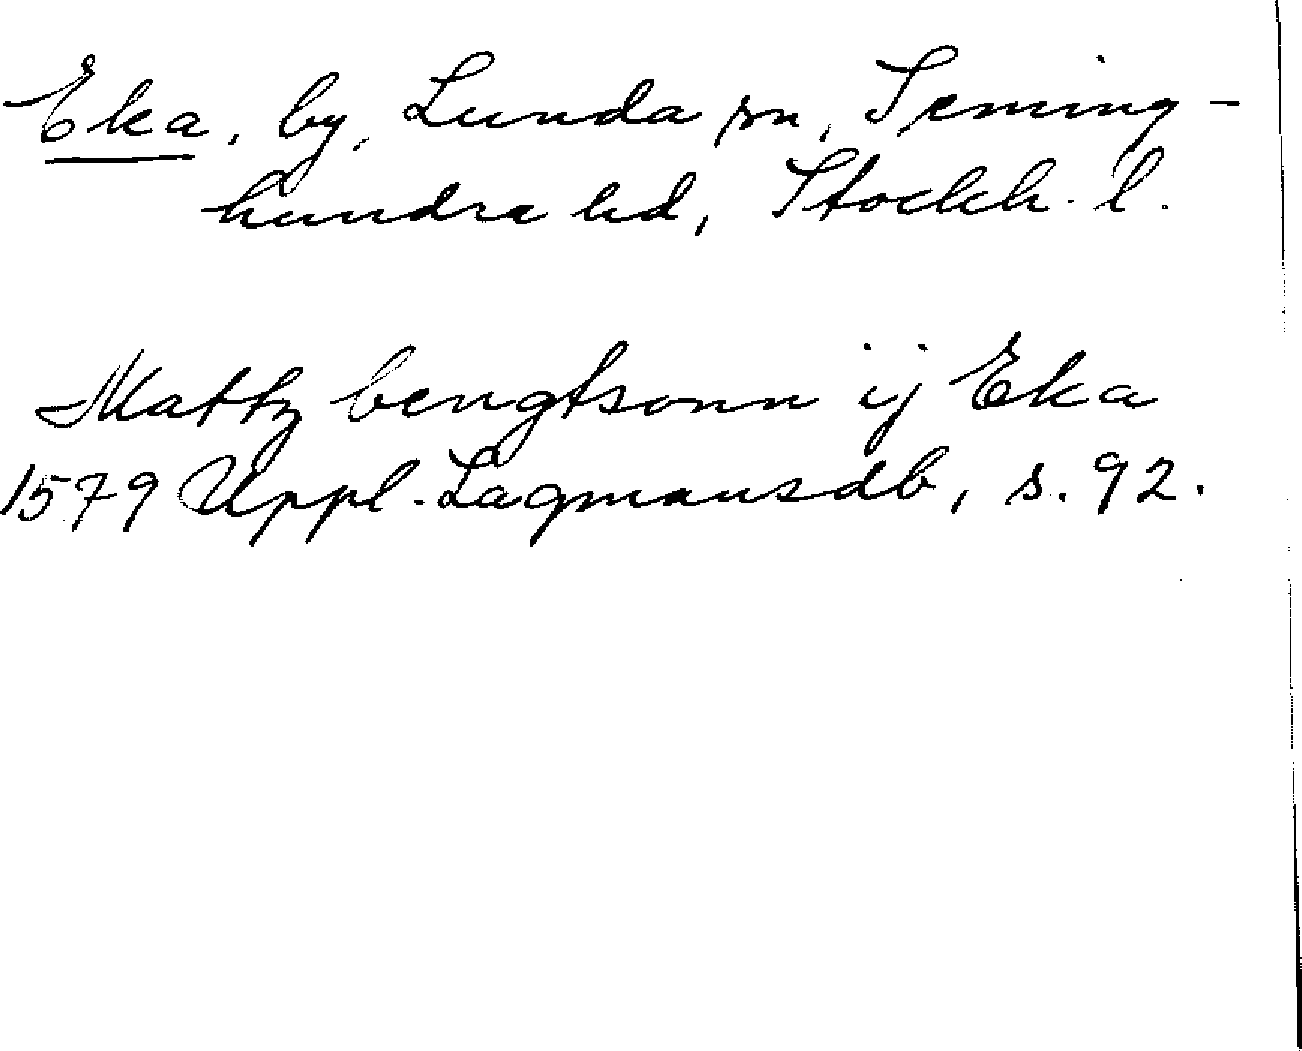 Eka, by, Lunda sn, Seming-
hundra hd, Stockh. l.
Mattz bengtsonn ij Eka
1579 Uppl. Lagmansdb, s. 92.